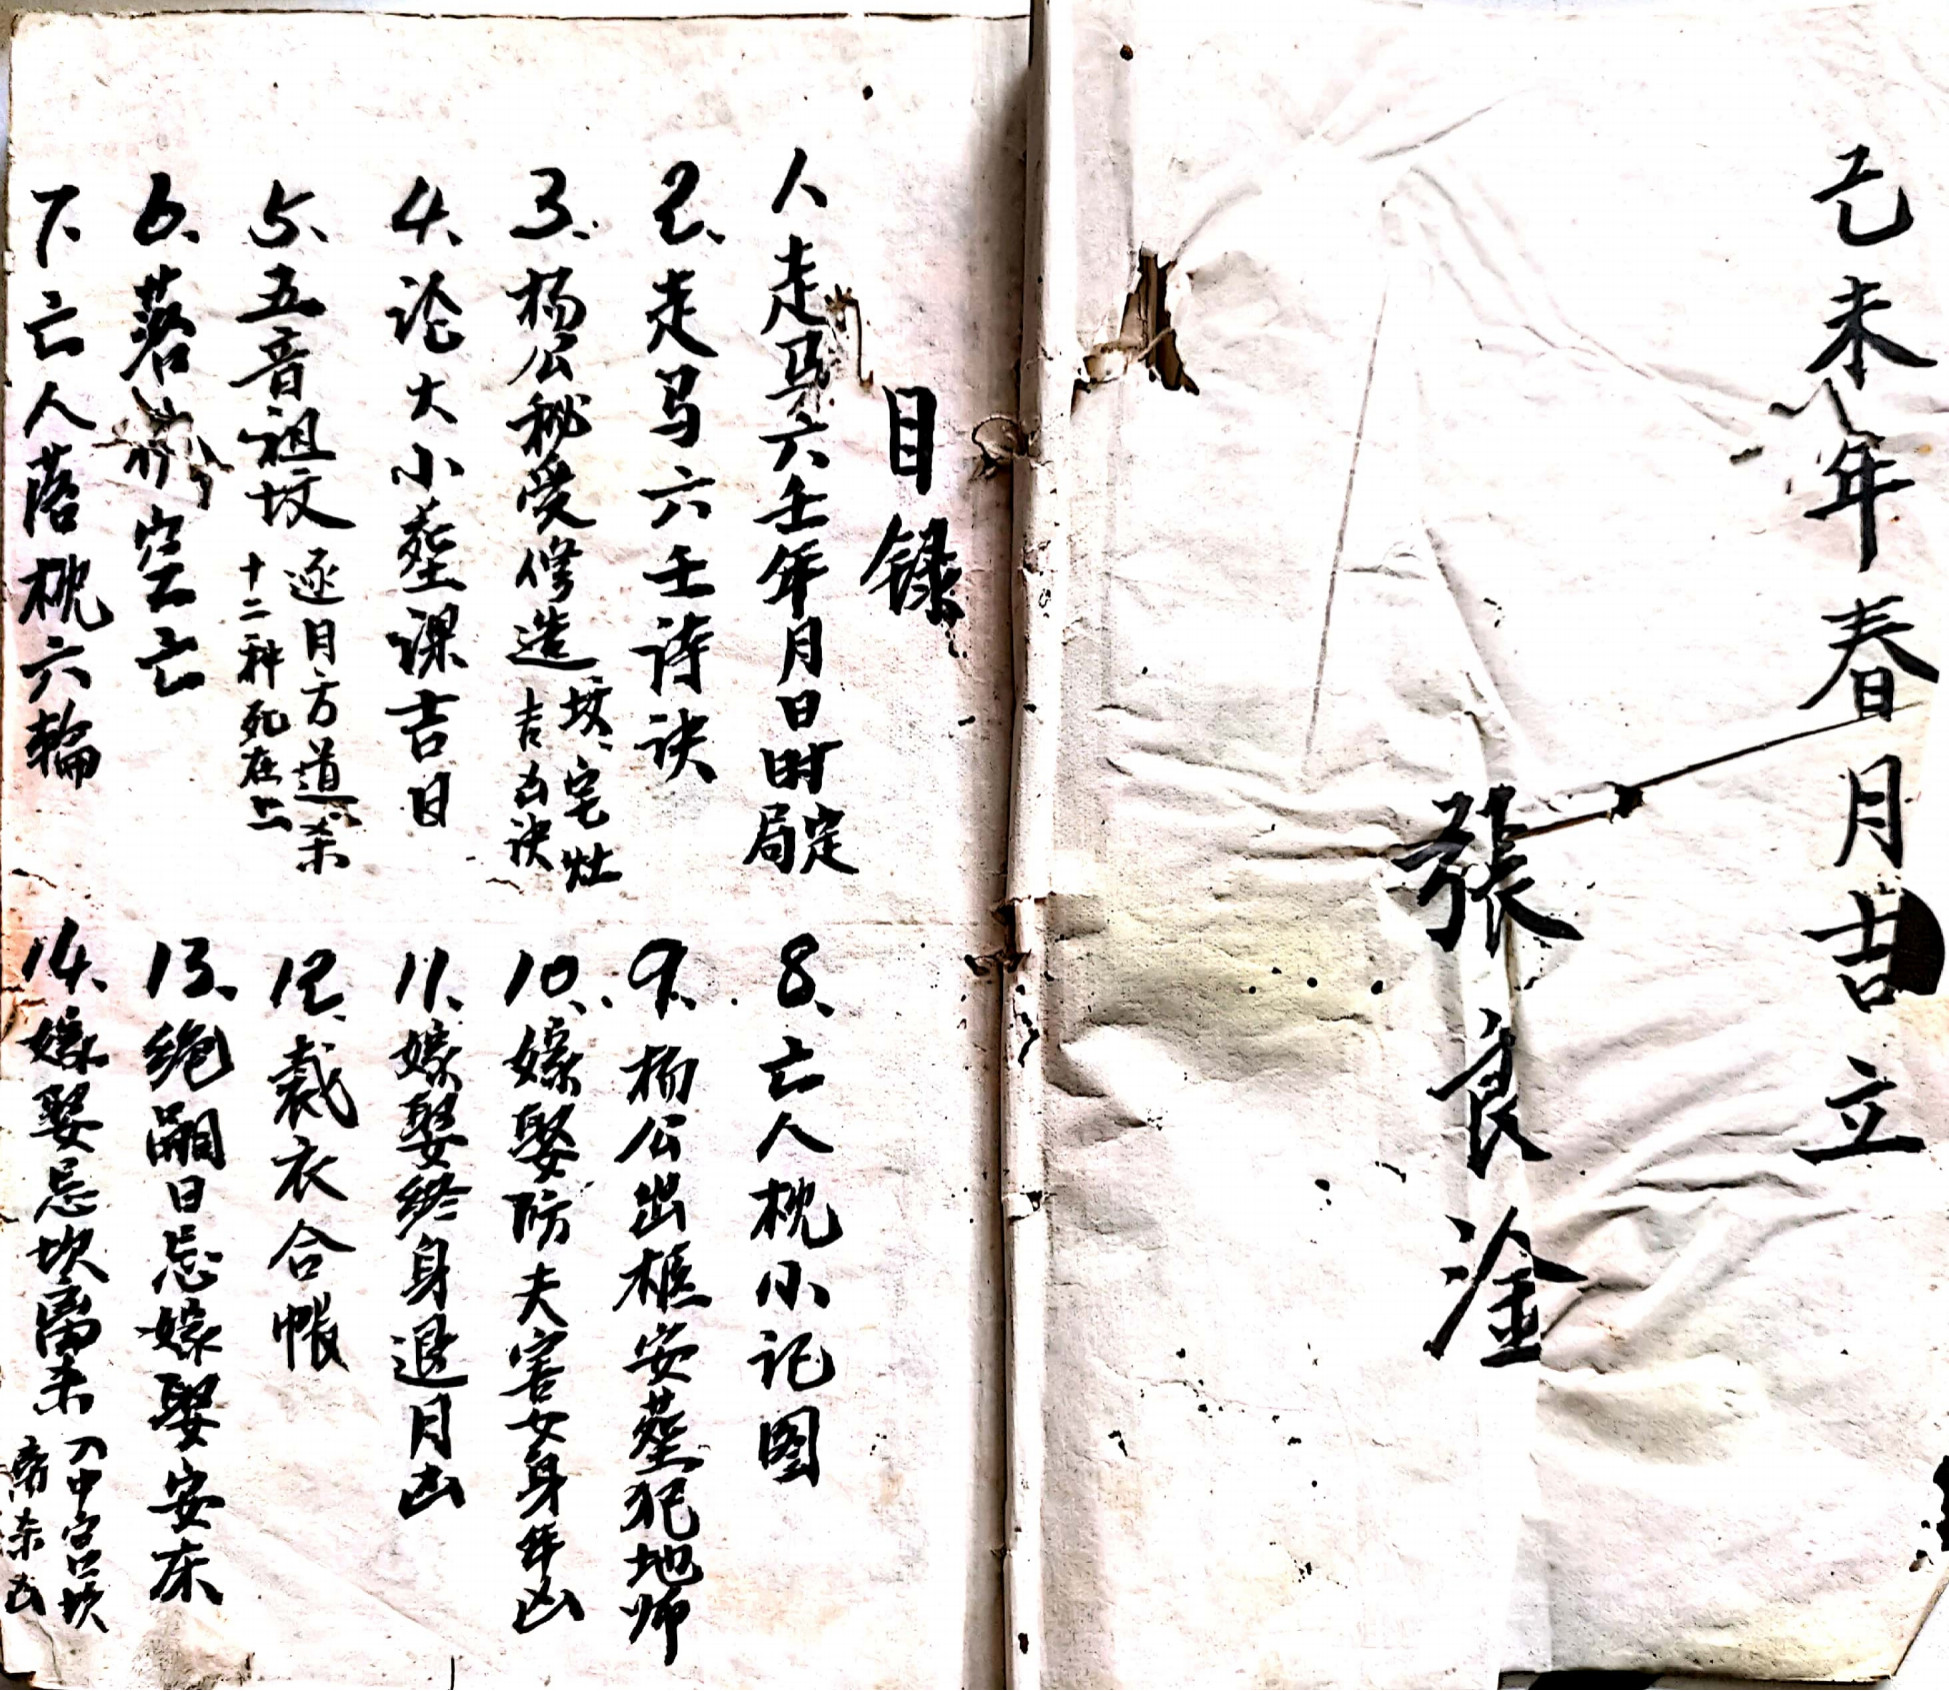 己未年春月吉立
張良淦
目録
1走马六壬年月日时定局
2、走马六壬诗诀
3、杨公秘受修造坟宅灶吉凶诀
4、论大小塟课吉日
5、五音祖坟逐月方道杀十二种死在上
6、落 空亡
7、亡人落枕六輪
8、亡人枕小记图
9、杨公出柩安塟犯地师
10、嫁娶防夫害女身年凶
11、嫁娶终身退月凶
12、裁衣合帳
13、绝嗣日忌嫁娶安床
14、嫁娶忌坎离杀 中宫坎离杀凶